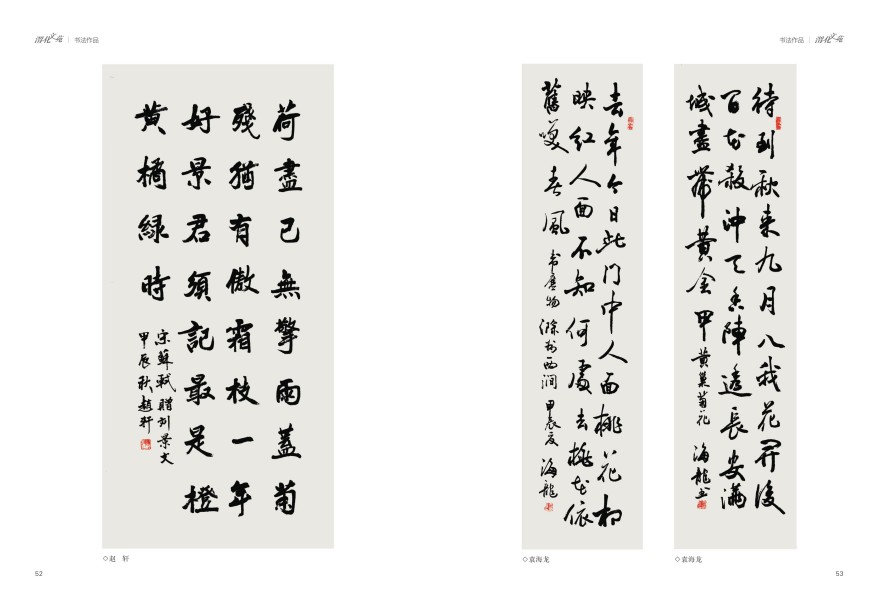 书法作品
荷盡已無擎雨蓋菊
殘猶有傲霜枝一年
好景君須記最是橙
黄橘緑時
宋蘇軾贈刘景文
甲辰秋趙軒
◇赵 轩
52
书法作品
待到秋来九月八我花開後
百花殺冲天香陣透長安滿
城盡帶黄金甲 黄巢菊花 海龍书
去年今日此门中人面桃花相
映红人面不知何處去桃花依
舊笑春風 滁州西涧 甲辰夏 海龍
◇袁海龙
◇袁海龙
53